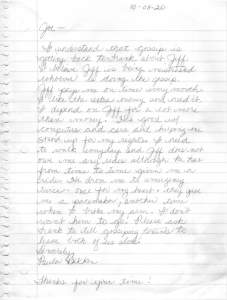 10-08-20
Joe –
I understand that gossip is
getting back to Frank about Jeff.
I believe Jeff is being
is doing the gossip.
Jeff pays me on time every month
I like the extra money and need it.
I depend on Jeff for a lot more
than money. He's good w/
computers and cars and helping me
stand up for my rights. I need
to work everyday and Jeff does not
owe me any rides although he has
from time to time given me a
ride. He drove me to emergency
twice - once for my heart - they give
me a pacemaker, another time
to my arm. I don't
want them to go! Please ask
Frank to tell gossiping to
leave both of us alone.
Sincerely,
Paula
Thanks for your time!